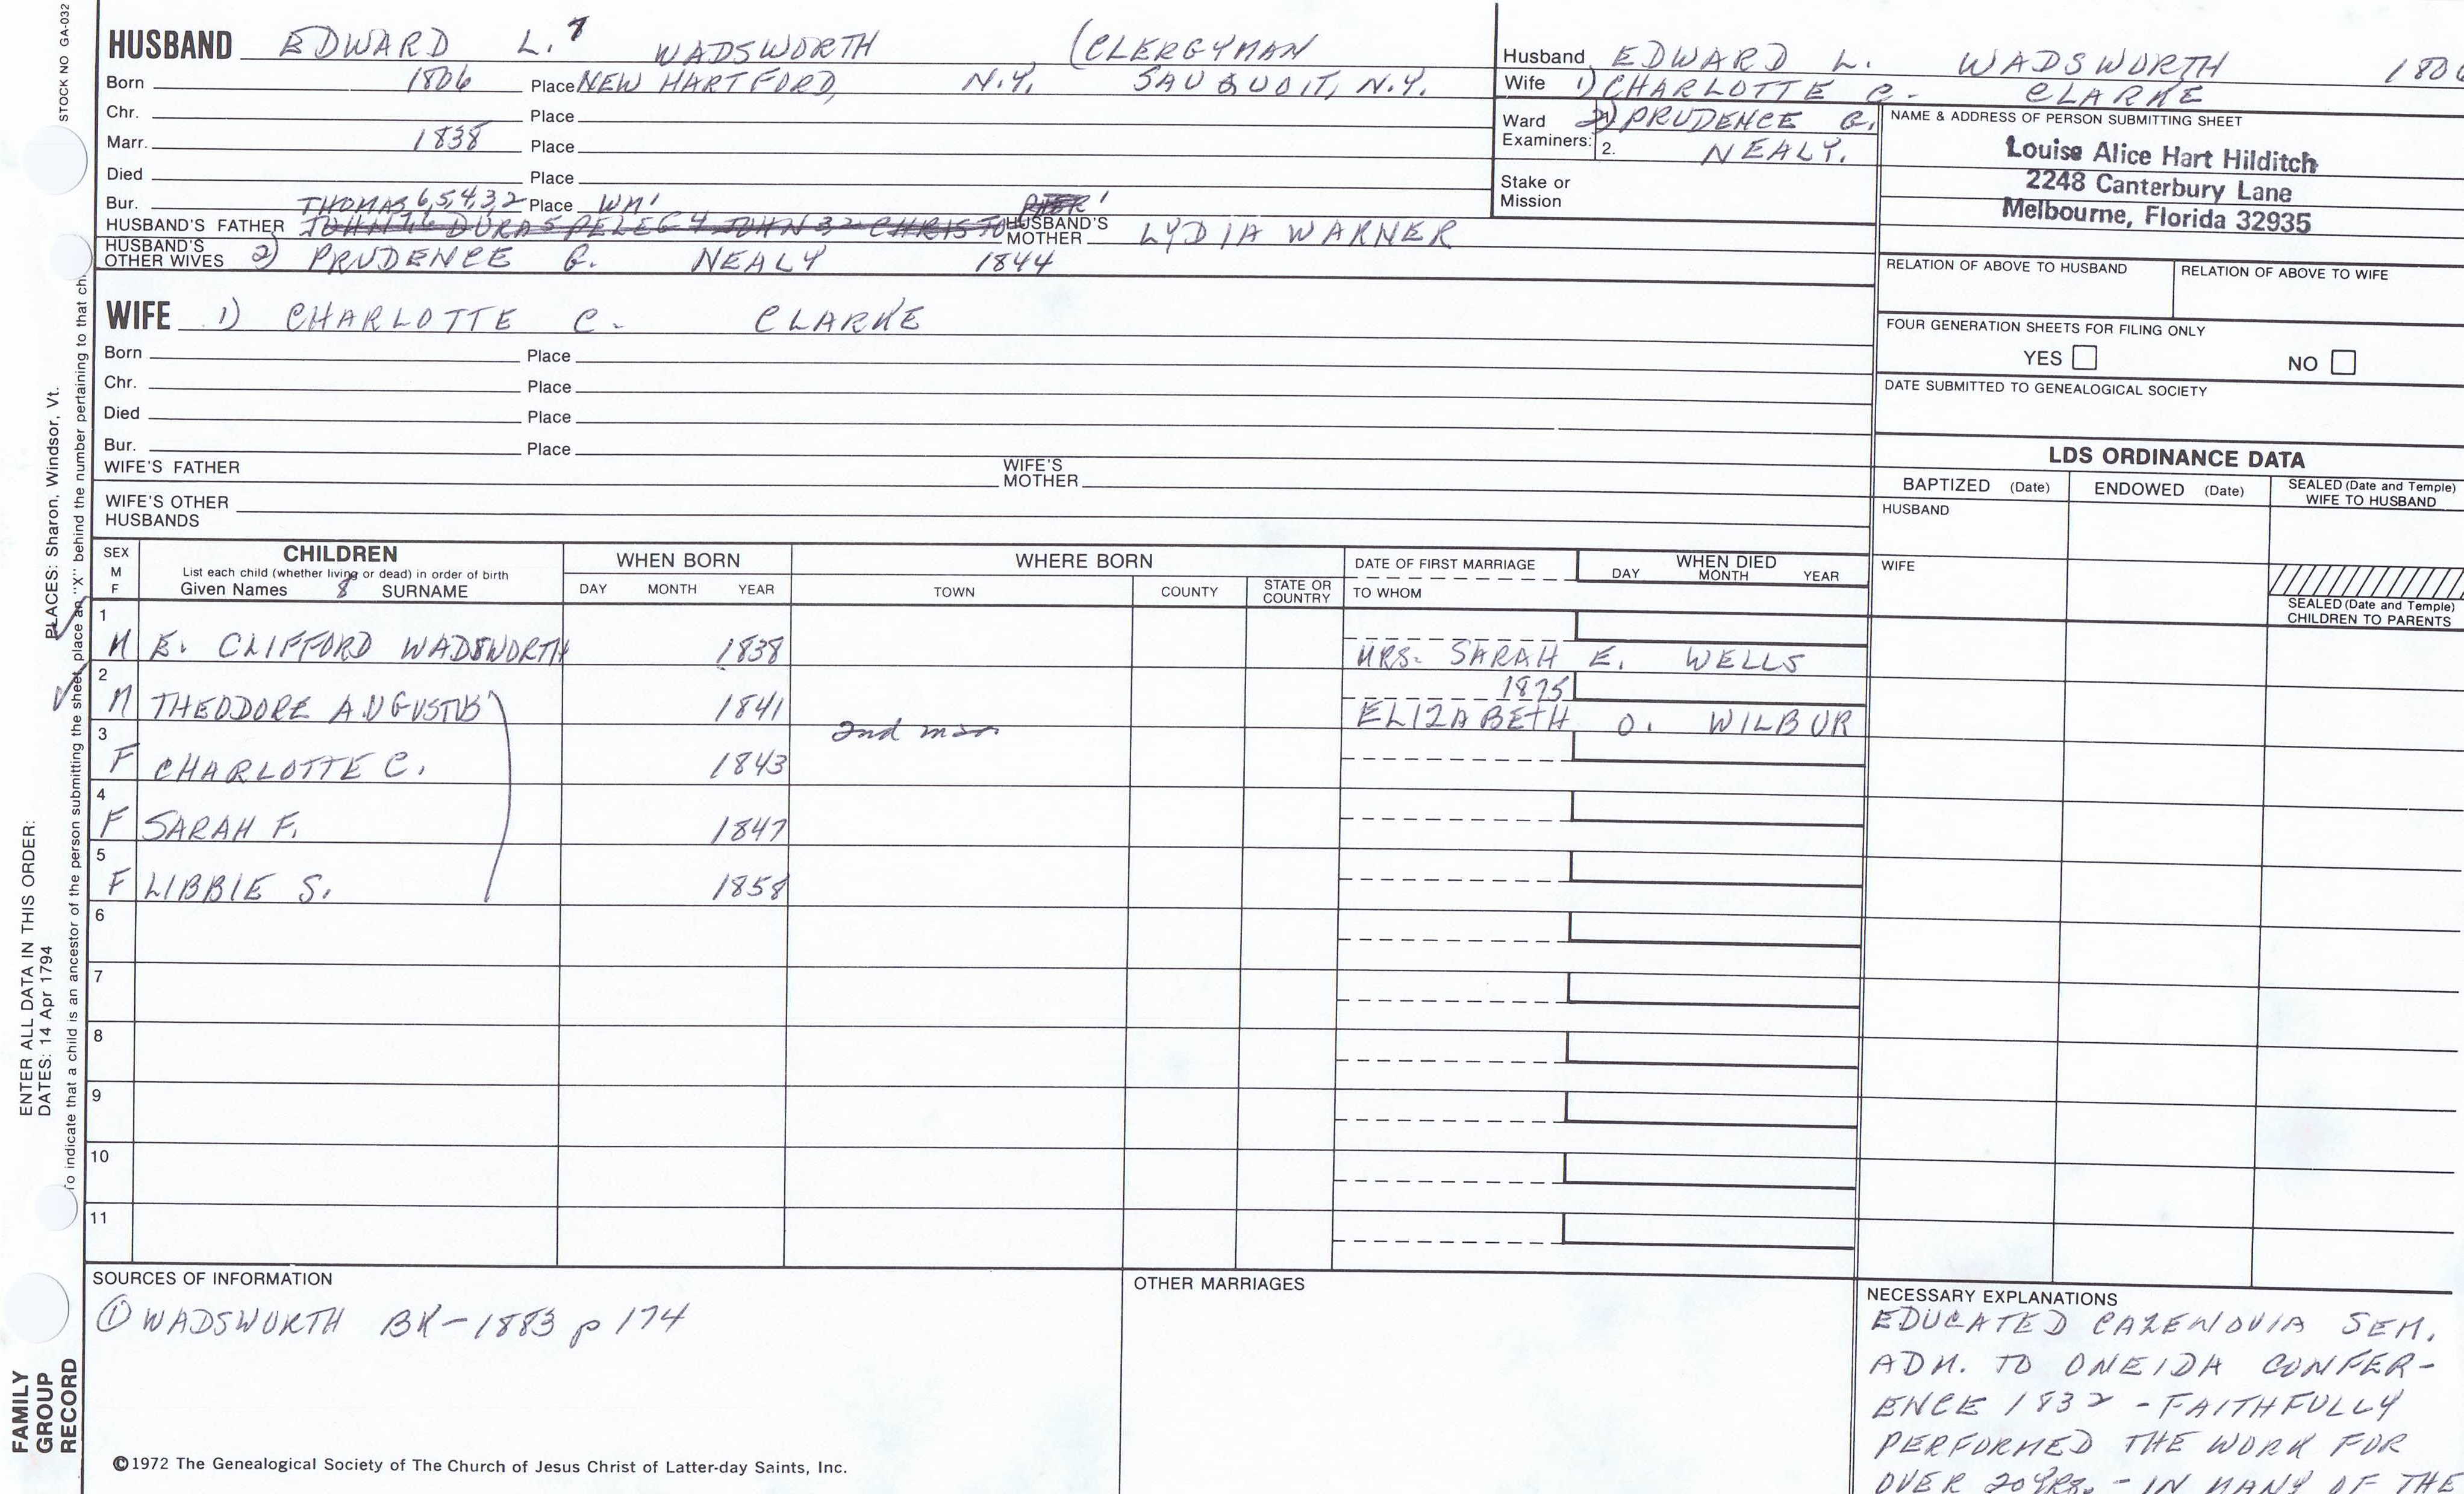 STOCK NO GA-032
HUSBAND EDWARD L.7 WADSWORTH (CLERGYMAN
Born 1806 Place NEW HARTFORD, N.Y. SAUQUOIT, N.Y.
Chr. Place
Marr. 1838 Place
Died Place
Bur. THOMAS 6,5,4,3,2 Place WM1
HUSBAND'S FATHER JOHN 7,6 DURA 5 PELEG 4 JOHN 3 2 CHRISTO HUSBAND'S MOTHER LYDIA WARNER
HUSBAND'S OTHER WIVES 2) PRUDENCE G. NEALY 1844
WIFE 1) CHARLOTTE C. CLARKE
Born Place
Chr. Place
Died Place
Bur. Place
WIFE'S FATHER WIFE'S MOTHER
WIFE'S OTHER HUSBANDS
Husband EDWARD L. WADSWORTH 1806
Wife 1) CHARLOTTE C. CLARKE
Ward Examiners: 2) PRUDENCE G.
2. NEALY.
Stake or Mission
NAME & ADDRESS OF PERSON SUBMITTING SHEET
Louise Alice Hart Hilditch
2248 Canterbury Lane
Melbourne, Florida 32935
RELATION OF ABOVE TO HUSBAND RELATION OF ABOVE TO WIFE
FOUR GENERATION SHEETS FOR FILING ONLY
YES NO
DATE SUBMITTED TO GENEALOGICAL SOCIETY
LDS ORDINANCE DATA
BAPTIZED (Date) ENDOWED (Date) SEALED (Date and Temple) WIFE TO HUSBAND
HUSBAND
WIFE
SEALED (Date and Temple) CHILDREN TO PARENTS
SEX M F CHILDREN WHEN BORN WHERE BORN DATE OF FIRST MARRIAGE WHEN DIED
List each child (whether living or dead) in order of birth
Given Names 8 SURNAME DAY MONTH YEAR TOWN COUNTY STATE OR COUNTRY TO WHOM DAY MONTH YEAR
1 M E. CLIFFORD WADSWORTH 1838 MRS. SARAH E. WELLS
2 M THEODORE AUGUSTUS 1841 1875 ELIZABETH O. WILBUR
2nd mar
3 F CHARLOTTE C. 1843
4 F SARAH F. 1847
5 F LIBBIE S. 1858
6
7
8
9
10
11
SOURCES OF INFORMATION
① WADSWORTH BK-1883 p 174
OTHER MARRIAGES
NECESSARY EXPLANATIONS
EDUCATED CAZENOVIA SEM.
ADM. TO ONEIDA CONFER-
ENCE 1832 - FAITHFULLY
PERFORMED THE WORK FOR
OVER 20 YRS. - IN MANY OF THE
©1972 The Genealogical Society of The Church of Jesus Christ of Latter-day Saints, Inc.
FAMILY GROUP RECORD
ENTER ALL DATA IN THIS ORDER:
DATES: 14 Apr 1794
PLACES: Sharon, Windsor, Vt.
To indicate that a child is an ancestor of the person submitting the sheet, place an "X" behind the number pertaining to that ch